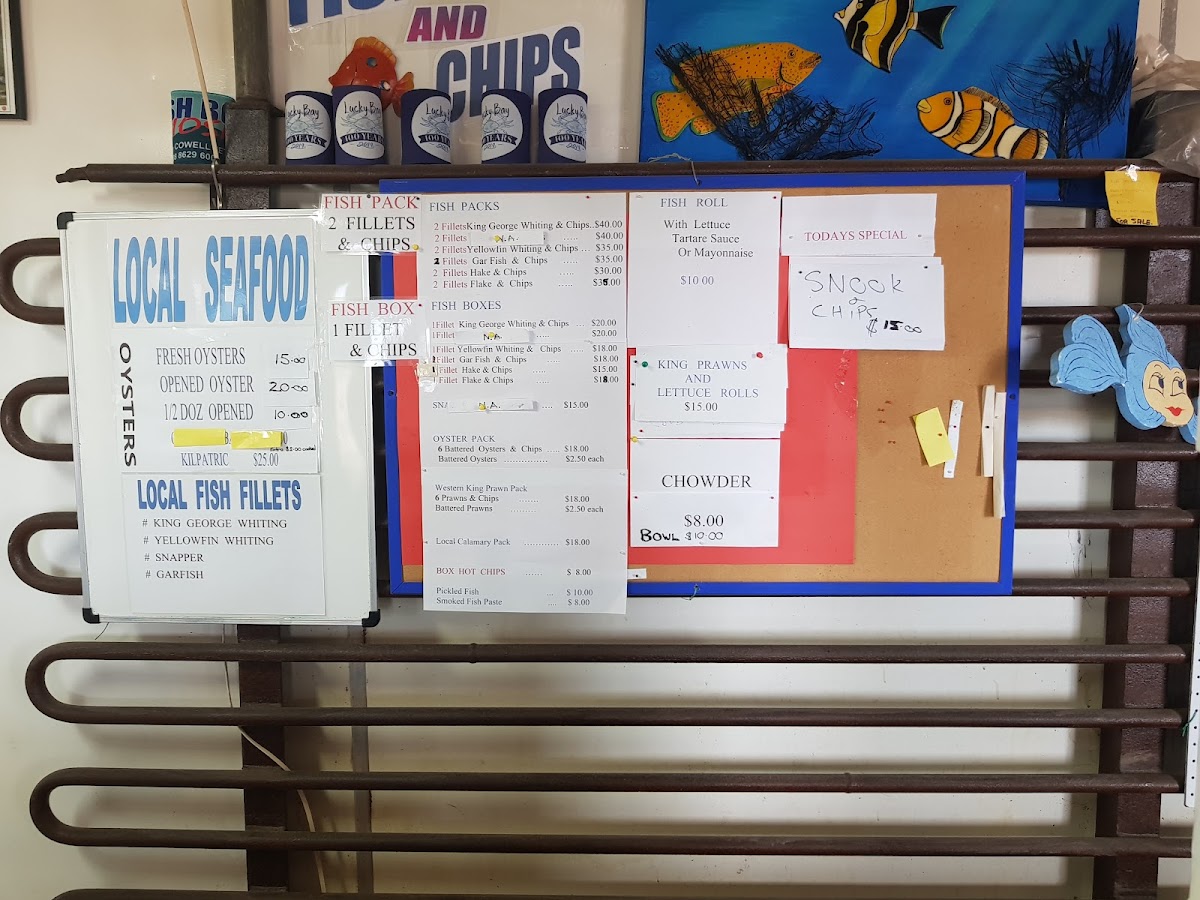 AND
CHIPS
Lucky Bay
YEARS
Lucky Bay
100 YEARS
Lucky Bay
100 YEARS
Lucky Bay
YEARS
Lucky Bay
100 YEA
SH BO
COWELL
8629 60
FOR SALE
LOCAL SEAFOOD
OYSTERS
FRESH OYSTERS 15.00
OPENED OYSTER 20.00
1/2 DOZ OPENED 10.00
KILPATRIC $25.00
LOCAL FISH FILLETS
# KING GEORGE WHITING
# YELLOWFIN WHITING
# SNAPPER
# GARFISH
FISH PACK
2 FILLETS
& CHIPS
FISH BOX
1 FILLET
& CHIPS
FISH PACKS
2 Fillets King George Whiting & Chips.. $40.00
2 Fillets N.A. ..... $40.00
2 Fillets Yellowfin Whiting & Chips ... $35.00
2 Fillets Gar Fish & Chips ..... $35.00
2 Fillets Hake & Chips ..... $30.00
2 Fillets Flake & Chips ..... $35.00
FISH BOXES
1Fillet King George Whiting & Chips ... $20.00
1Fillet N.A. ..... $20.00
1Fillet Yellowfin Whiting & Chips ..... $18.00
Fillet Gar Fish & Chips ..... $18.00
1 Fillet Hake & Chips ..... $15.00
Fillet Flake & Chips ..... $18.00
SNA N.A. ..... $15.00
OYSTER PACK
6 Battered Oysters & Chips ..... $18.00
Battered Oysters ............... $2.50 each
Western King Prawn Pack
6 Prawns & Chips ........ $18.00
Battered Prawns ........ $2.50 each
Local Calamary Pack ........ $18.00
BOX HOT CHIPS ....... $ 8.00
Pickled Fish ... $ 10.00
Smoked Fish Paste .... $ 8.00
FISH ROLL
With Lettuce
Tartare Sauce
Or Mayonnaise
$10.00
KING PRAWNS
AND
LETTUCE ROLLS
$15.00
CHOWDER
$8.00
BOWL $10.00
TODAYS SPECIAL
SNOOK
&
CHIPS
$15.00